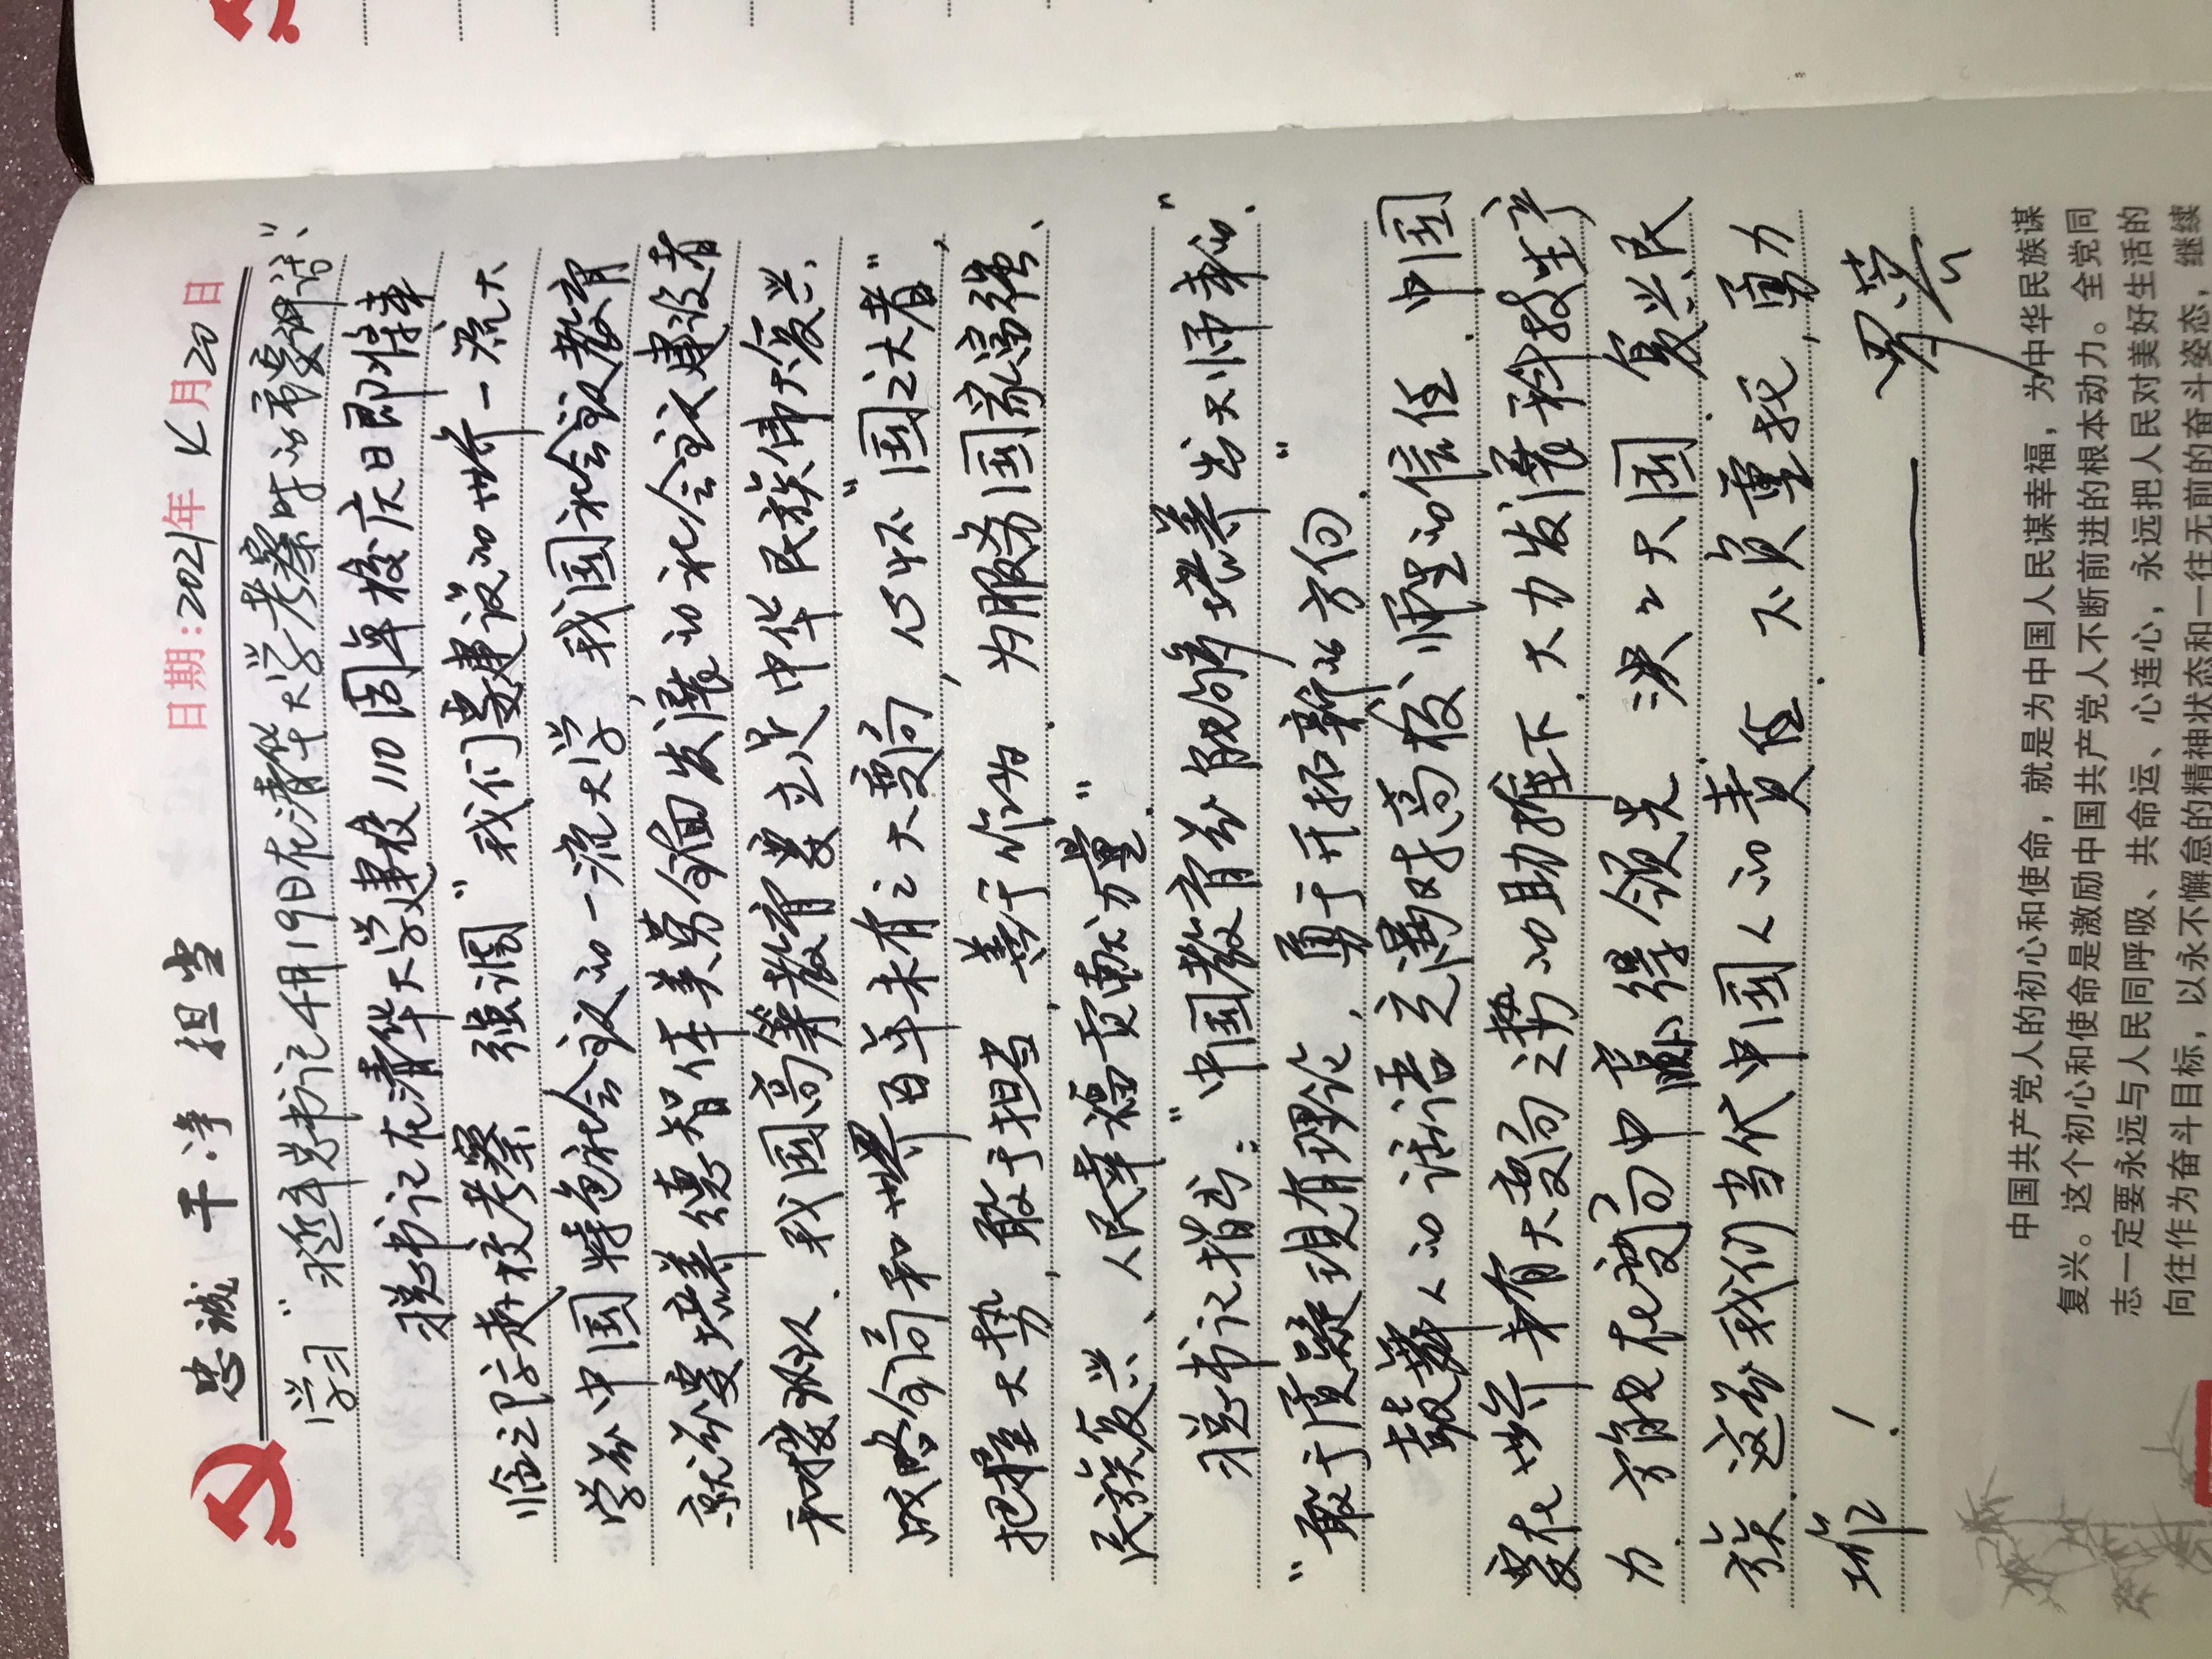 忠诚 干净 担当
日期：2021年4月20日
学习“习近平总书记4月19日在清华大学考察时的重要讲话”、
习总书记在清华大学建校110周年校庆日即将来
临之际赴校考察 强调“我们要建设的世界一流大
学是中国特色社会主义的一流大学，我国社会主义教育
就是要培养德智体美劳全面发展的社会主义建设者
和接班人．我国高等教育要立足中华民族伟大复兴
战略全局和世界百年未有之大变局，心怀“国之大者”，
把握大势，敢于担当，善于作为．为服务国家富强、
民族复兴、人民幸福贡献力量”．
习总书记指出：“中国教育是能够培养出大师来的”．
“敢于质疑现有理论，勇于开拓新的方向．”
鼓舞人的话语充满对高校师生的信任．中国
要在世界未有大变局之势的助推下．大力发展科技生产
力．方能在变局中赢得领先．泱泱大国．复兴民
族．这是我们当代中国人的责任．不负重托，勇力
！
中国共产党人的初心和使命，就是为中国人民谋幸福，为中华民族谋
复兴。这个初心和使命是激励中国共产党人不断前进的根本动力。全党同
志一定要永远与人民同呼吸、共命运、心连心，永远把人民对美好生活的
向往作为奋斗目标，以永不懈怠的精神状态和一往无前的奋斗姿态，继续